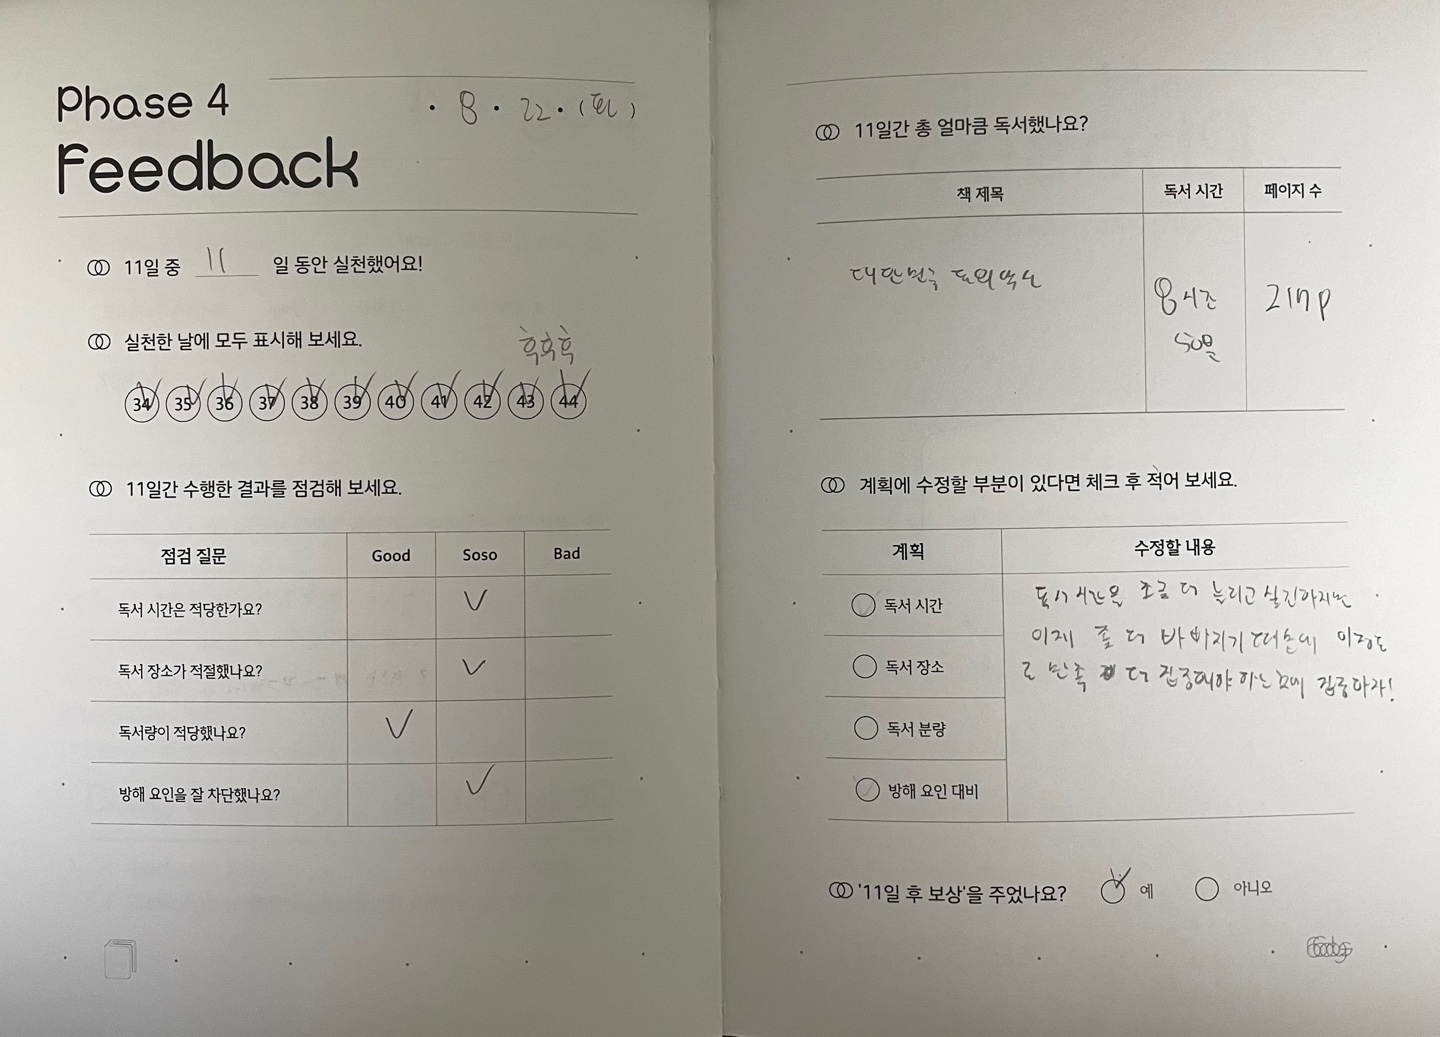 Phase 4
Feedback
8 . 22 . (화)
11일 중 11 일 동안 실천했어요!
실천한 날에 모두 표시해 보세요.
흑흑흑
34 35 36 37 38 39 40 41 42 43 44
11일간 수행한 결과를 점검해 보세요.
점검 질문 Good Soso Bad
독서 시간은 적당한가요?
독서 장소가 적절했나요?
독서량이 적당했나요?
방해 요인을 잘 차단했나요?
11일간 총 얼마큼 독서했나요?
책 제목 독서 시간 페이지 수
대한민국
8시간
50분
217p
계획에 수정할 부분이 있다면 체크 후 적어 보세요.
계획 수정할 내용
독서 시간을 조금 더 늘리고 싶긴하지만
이제 좀 더 바빠지기 때문에 이정도
로 만족 더 집중해야 하는 집중하자!
독서 시간
독서 장소
독서 분량
방해 요인 대비
'11일 후 보상'을 주었나요? 예 아니오